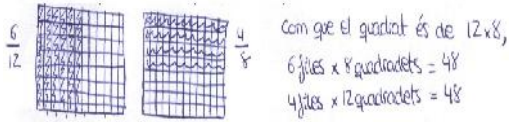 6/12
4/8
Com que el quadrat és de 12x8,
6 files x 8 quadradets = 48
4 files x 12 quadradets = 48